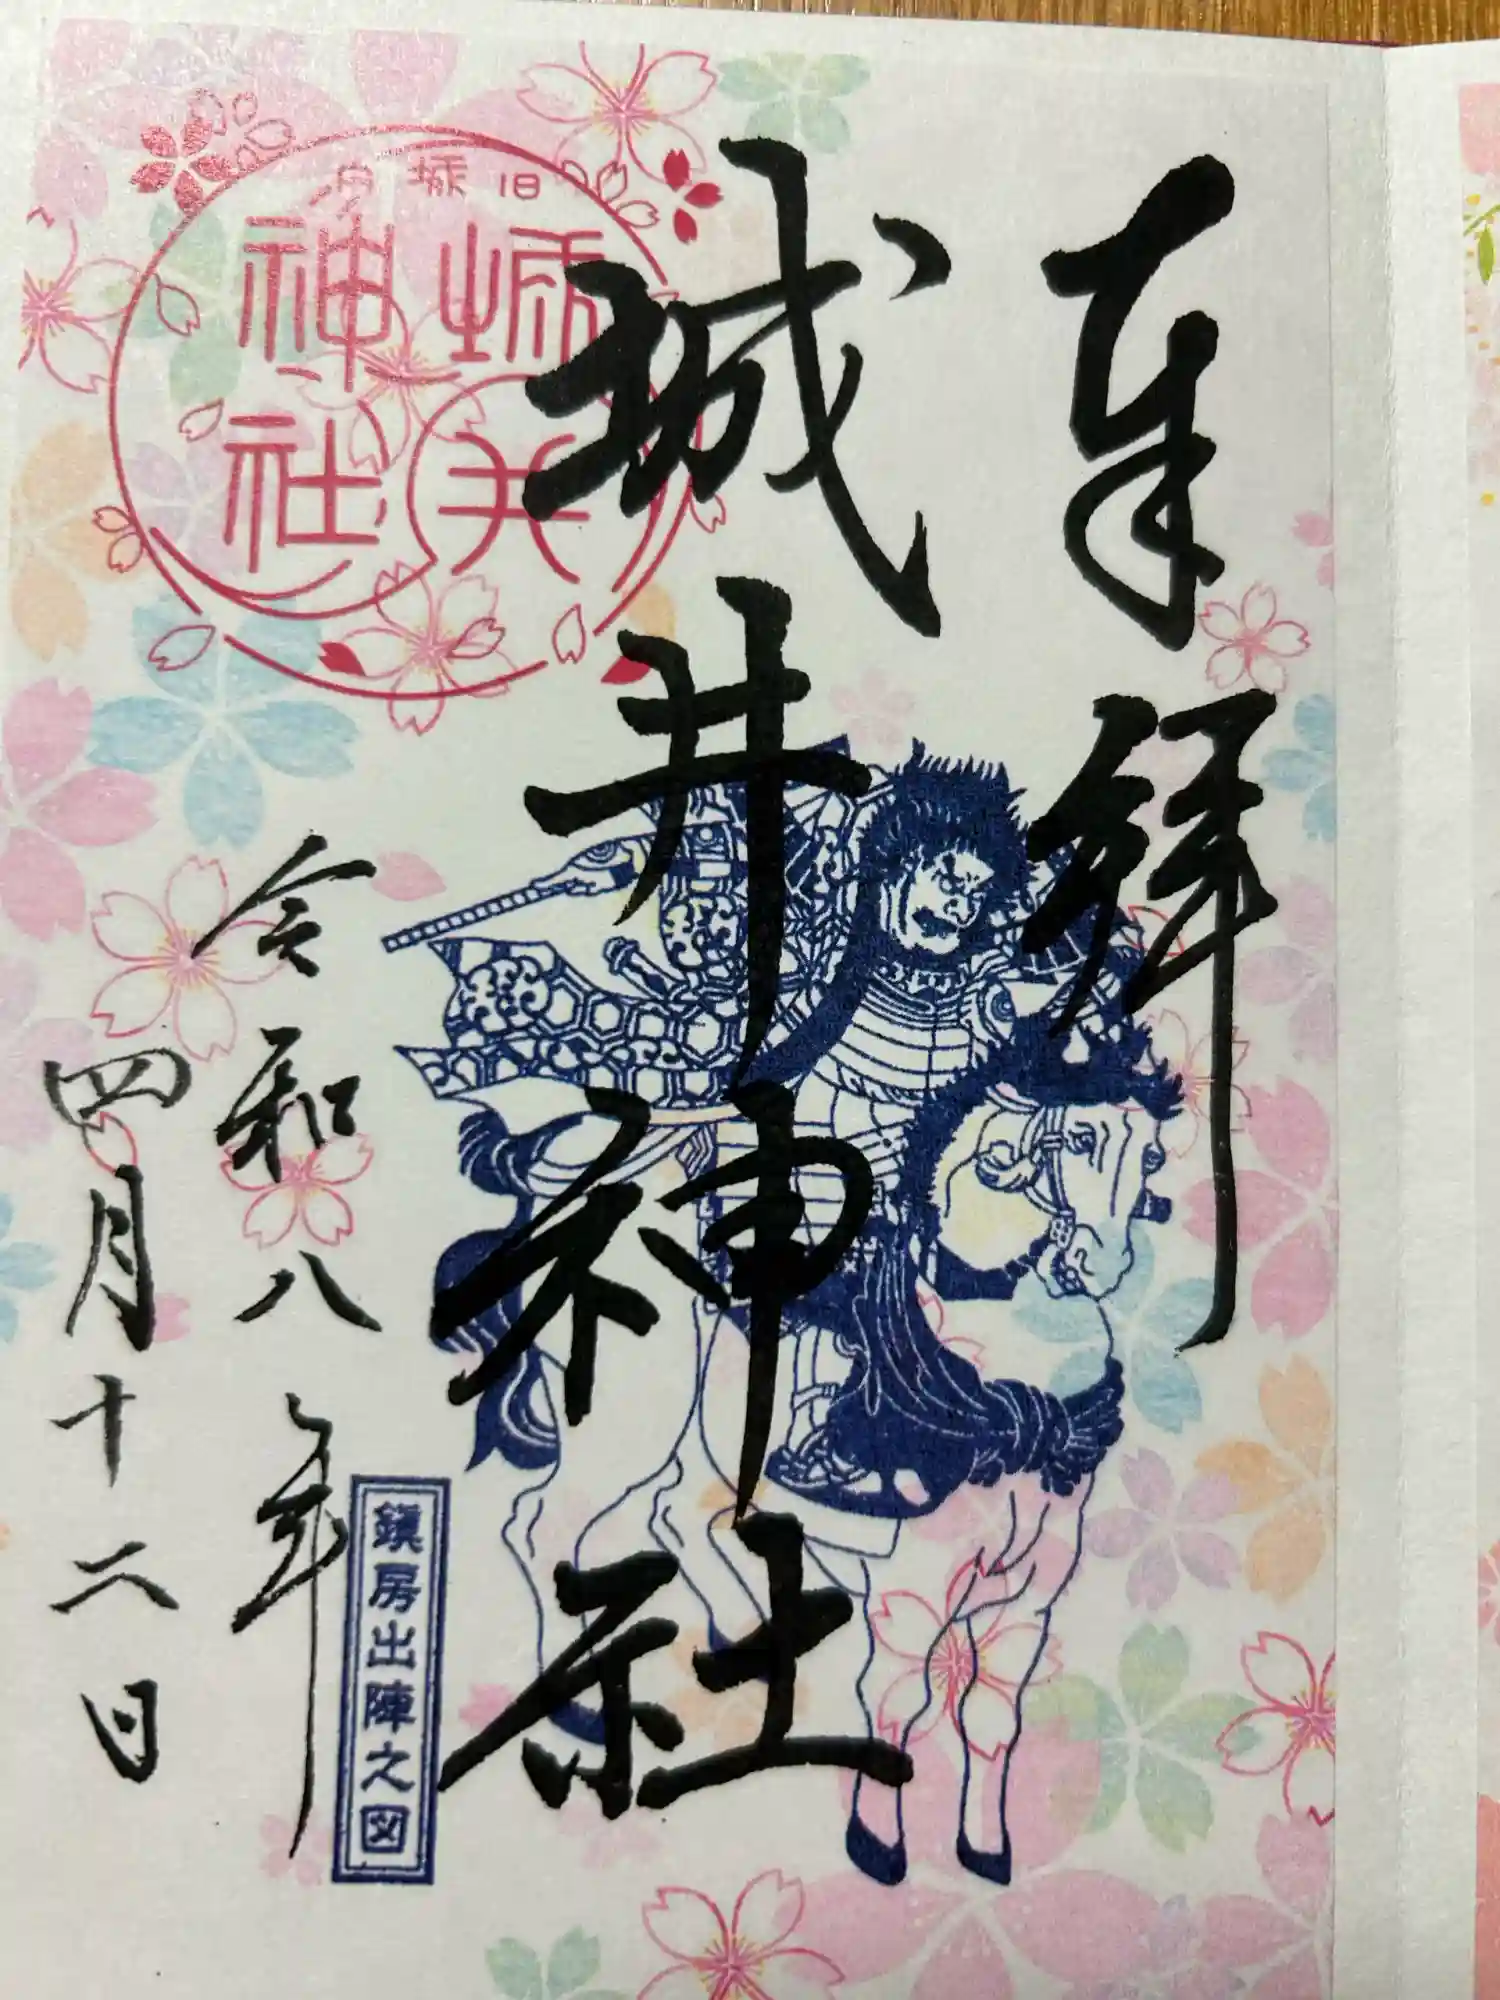 奉拝
城井神社
旧城内
城井
神社
鎮房出陣之図
令和八年
四月十二日